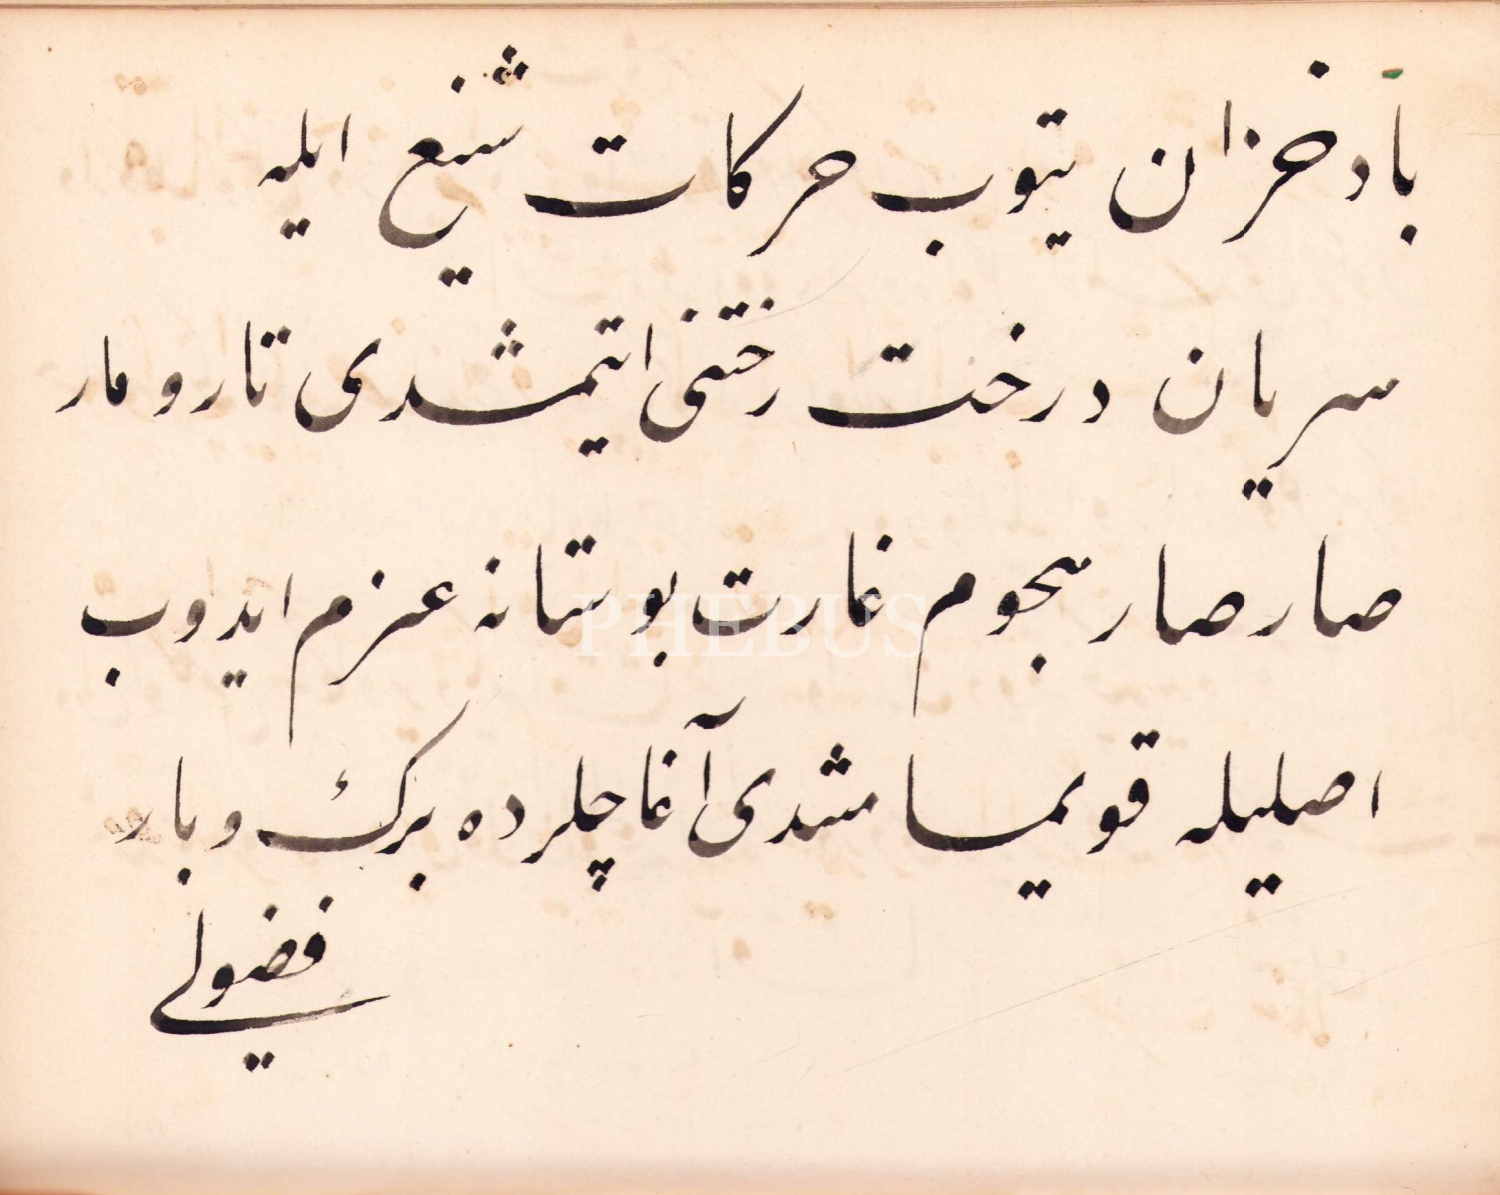 باد خزان یتوب حرکات شنیع ایله
سریان درخت رختنی ایتمشدی تار و مار
صارصار هجوم غارت بوستانه عزم ایدوب
اصلیله قویمامشدی آغاجلرده برك و بار
فضولی
PHEBUS